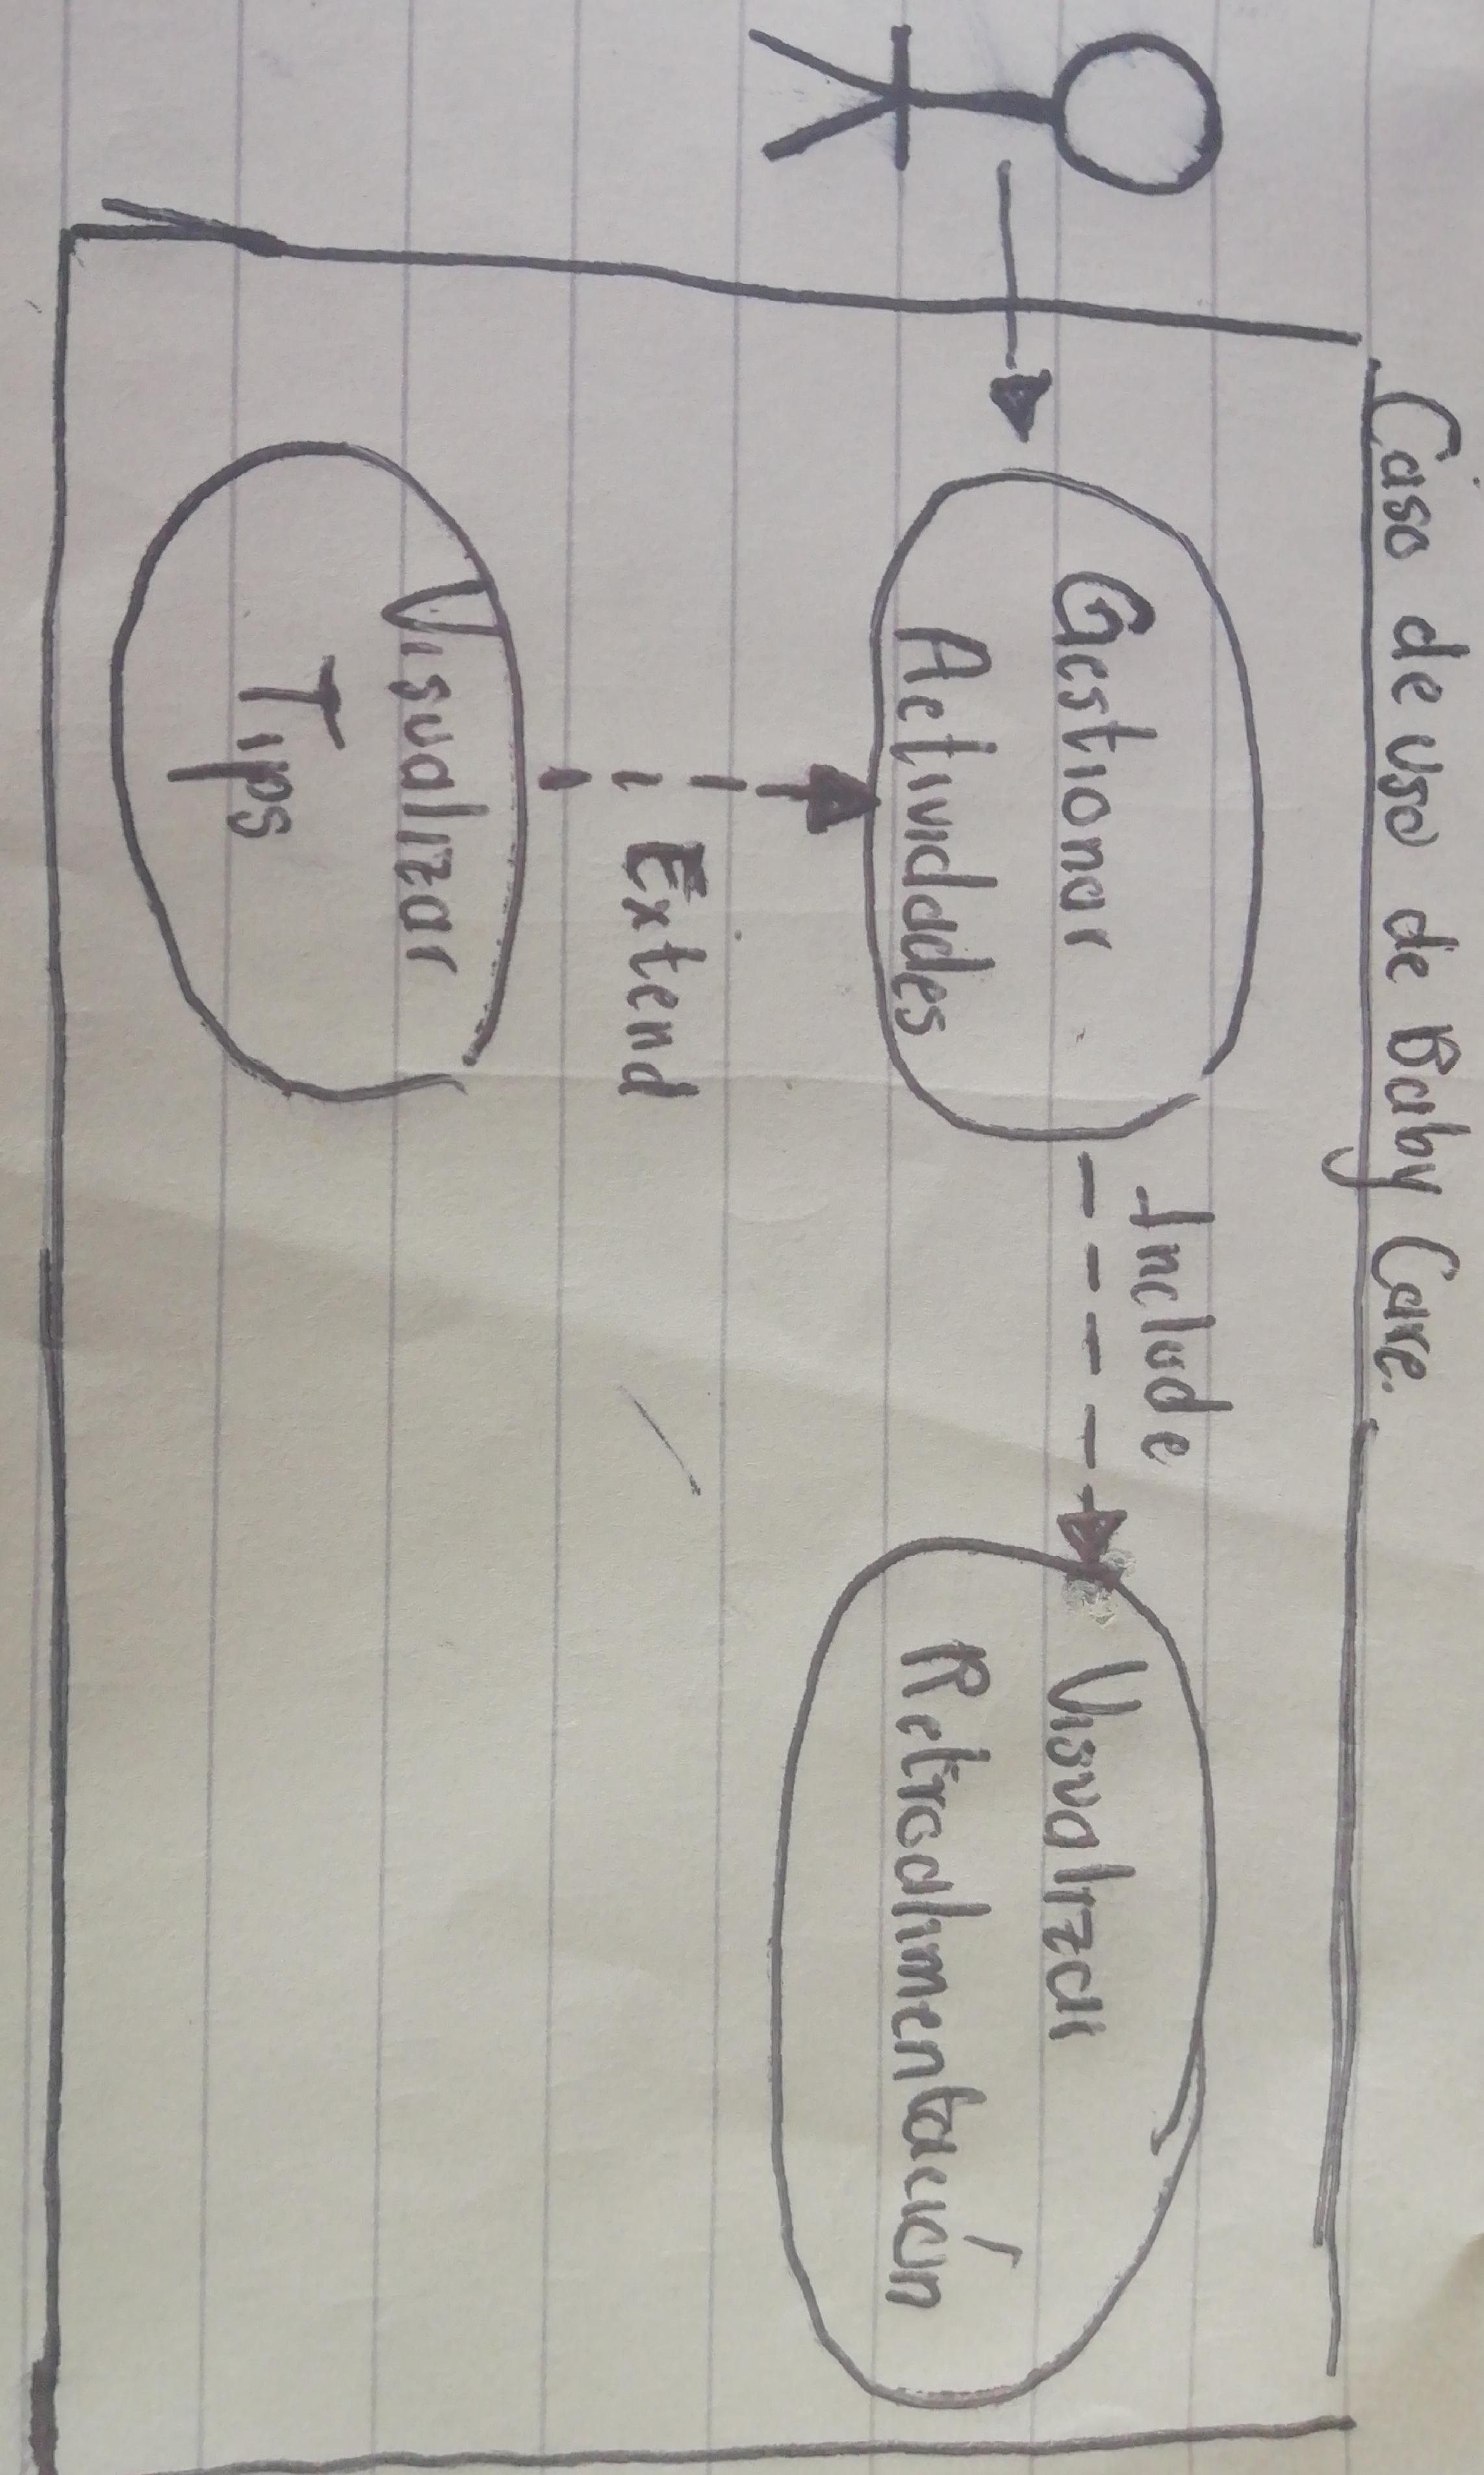 Caso de uso de Baby Care.
Gestionar
Actividades
Include
Visualizar
Retroalimentación
Extend
Visualizar
Tips